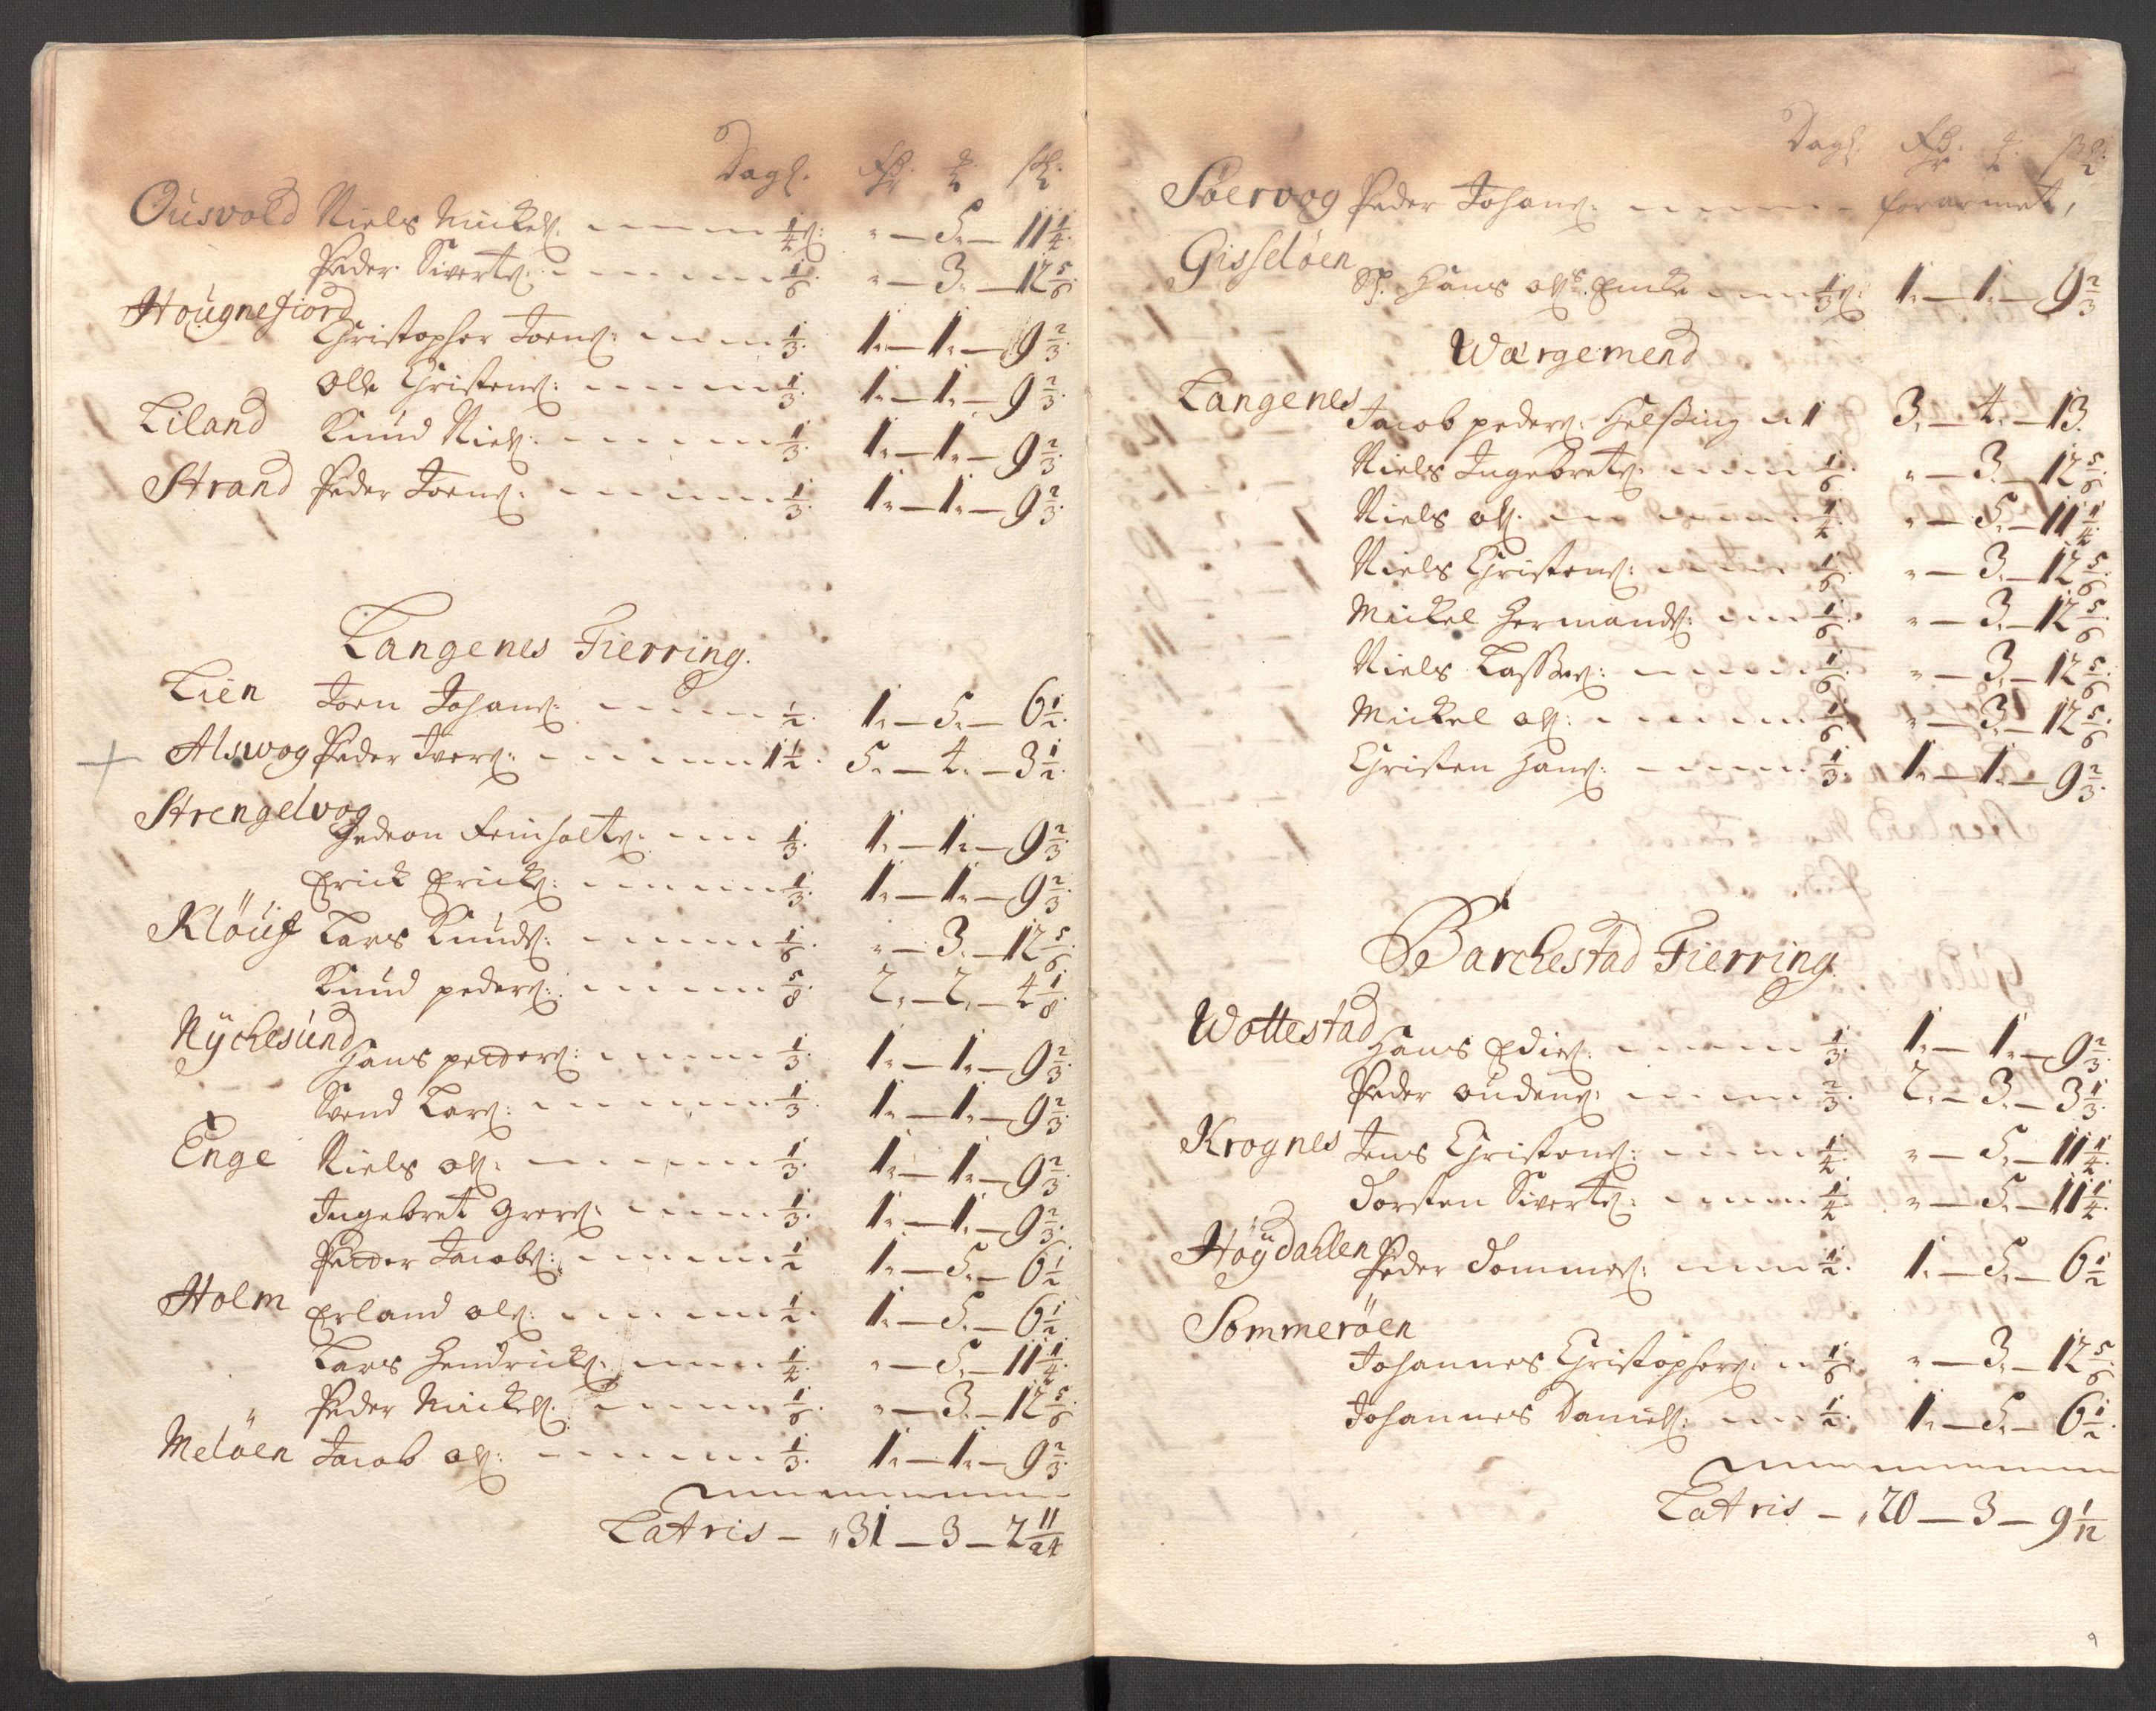 Dagl. Rdr. ℔. sk.
Ousvold Niels Mickels: 1/4: " — 5 — 11 1/4
Peder Siverts: 1/6: " — 3 — 12 5/6
Hougnefiord
Christopher Joens: 1/3: 1 — 1 — 9 2/3
Olle Christens: 1/3: 1 — 1 — 9 2/3
Liland Knud Niels: 1/3: 1 — 1 — 9 2/3
Strand Peder Joens: 1/3: 1 — 1 — 9 2/3
Langenes Fierring.
Lien Joen Johans: 1/2: 1 — 5 — 6 1/2
Alswog Peder Ivers: 1 1/2: 5 — 4 — 3 1/2
Strengelvog
Gedeon Reinholts: 1/3: 1 — 1 — 9 2/3
Erick Ericks: 1/3: 1 — 1 — 9 2/3
Klöuf Lars Knuds: 1/6: " — 3 — 12 5/6
Knud peders: 5/8: 2 — 2 — 4 1/8
Nÿchesund
Hans peders: 1/3: 1 — 1 — 9 2/3
Svend Lars: 1/3: 1 — 1 — 9 2/3
Enge Niels ols: 1/3: 1 — 1 — 9 2/3
Ingebret Grers: 1/3: 1 — 1 — 9 2/3
Peder Jacobs: 1/2 1 — 5 — 6 1/2
Holm Erland ols: 1/2: 1 — 5 — 6 1/2
Lars Hendricks: 1/4: " — 5 — 11 1/4
Peder Mickels: 1/6: " — 3 — 12 5/6
Melöen Jacob ols: 1/3: 1 — 1 — 9 2/3
Latris — " 31 — 3 — 2 11/24
Dagl. Rdr. ℔. sk.
Söervog Peder Johans: forarmet,
Gisselöen
Sr. Hans ols: 1/3: 1 — 1 — 9 2/3
Wærgemend
Langenes
Jacob peders: Helsing 1 3 — 4 — 13
Niels Ingebrets: 1/6 " — 3 — 12 5/6
Niels ols: 1/4: " — 5 — 11 1/4
Niels Christens: 1/6: " — 3 — 12 5/6
Mickel Hermands: 1/6: " — 3 — 12 5/6
Niels Lasses: 1/6: " — 3 — 12 5/6
Mickel ols: 1/6 " — 3 — 12 5/6
Christen Hans: 1/3: 1 — 1 — 9 2/3
Barchestad Fierring
Wottestad
Hans Edis: 1/3: 1 — 1 — 9 2/3
Peder oudens: 2/3: 2 — 3 — 3 1/3
Krognes Jens Christens: 1/4: " — 5 — 11 1/4
Torsten Siverts: 1/4: " — 5 — 11 1/4
Höÿdahlen
Peder Tommes: 1/2: 1 — 5 — 6 1/2
Sommeröen
Johannes Christophers: 1/6: " — 3 — 12 5/6
Johannes Daniels: 1/2: 1 — 5 — 6 1/2
Latris — " 20 — 3 — 9 1/12
9